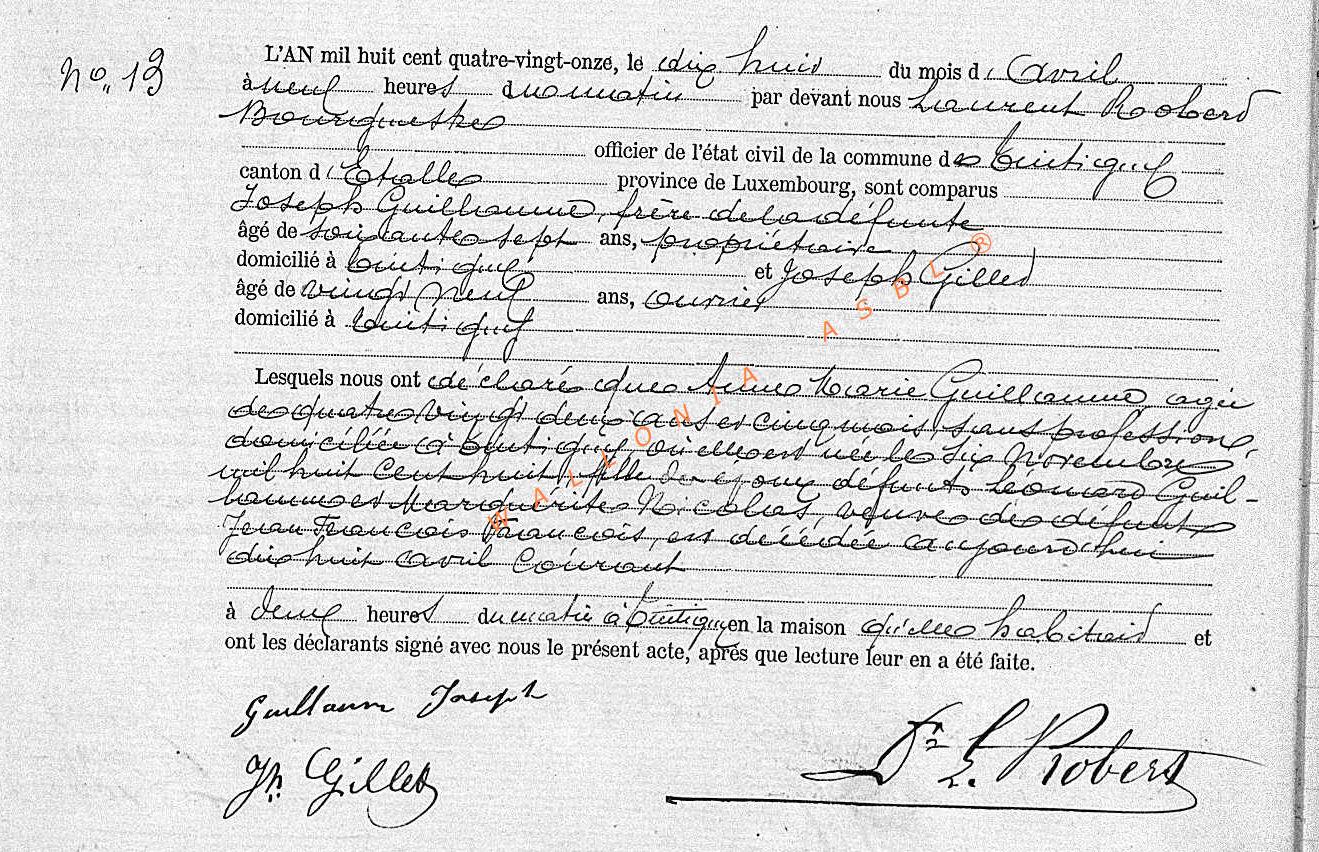 No. 13
L'AN mil huit cent quatre-vingt-onze, le dix huit du mois d' Avril
à neuf heures du matin par devant nous Laurent Robert
Bourgmestre
officier de l'état civil de la commune de Tintigny
canton d' Etalle province de Luxembourg, sont comparus
Joseph Guillaume, frère de la défunte
âgé de soixante sept ans, propriétaire
domicilié à Tintigny et Joseph Gillet
âgé de vingt neuf ans, ouvrier
domicilié à Tintigny
Lesquels nous ont déclaré que Anne Marie Guillaume, agée
de quatre vingt deux ans et cinq mois, sans profession,
domiciliée à Tintigny, où elle est née le six Novembre
mil huit cent huit, fille des époux défunts Léonard Guil-
laume et Marguerite Nicolas, veuve de défunt
Jean François François, est décédée aujourd'hui
dix huit avril courant
à deux heures du matin à Tintigny en la maison qu'elle habitait et
ont les déclarants signé avec nous le présent acte, après que lecture leur en a été faite.
Guillaume Joseph
Jh. Gillet
Dr L. Robert
WALLONIA ASBL ®